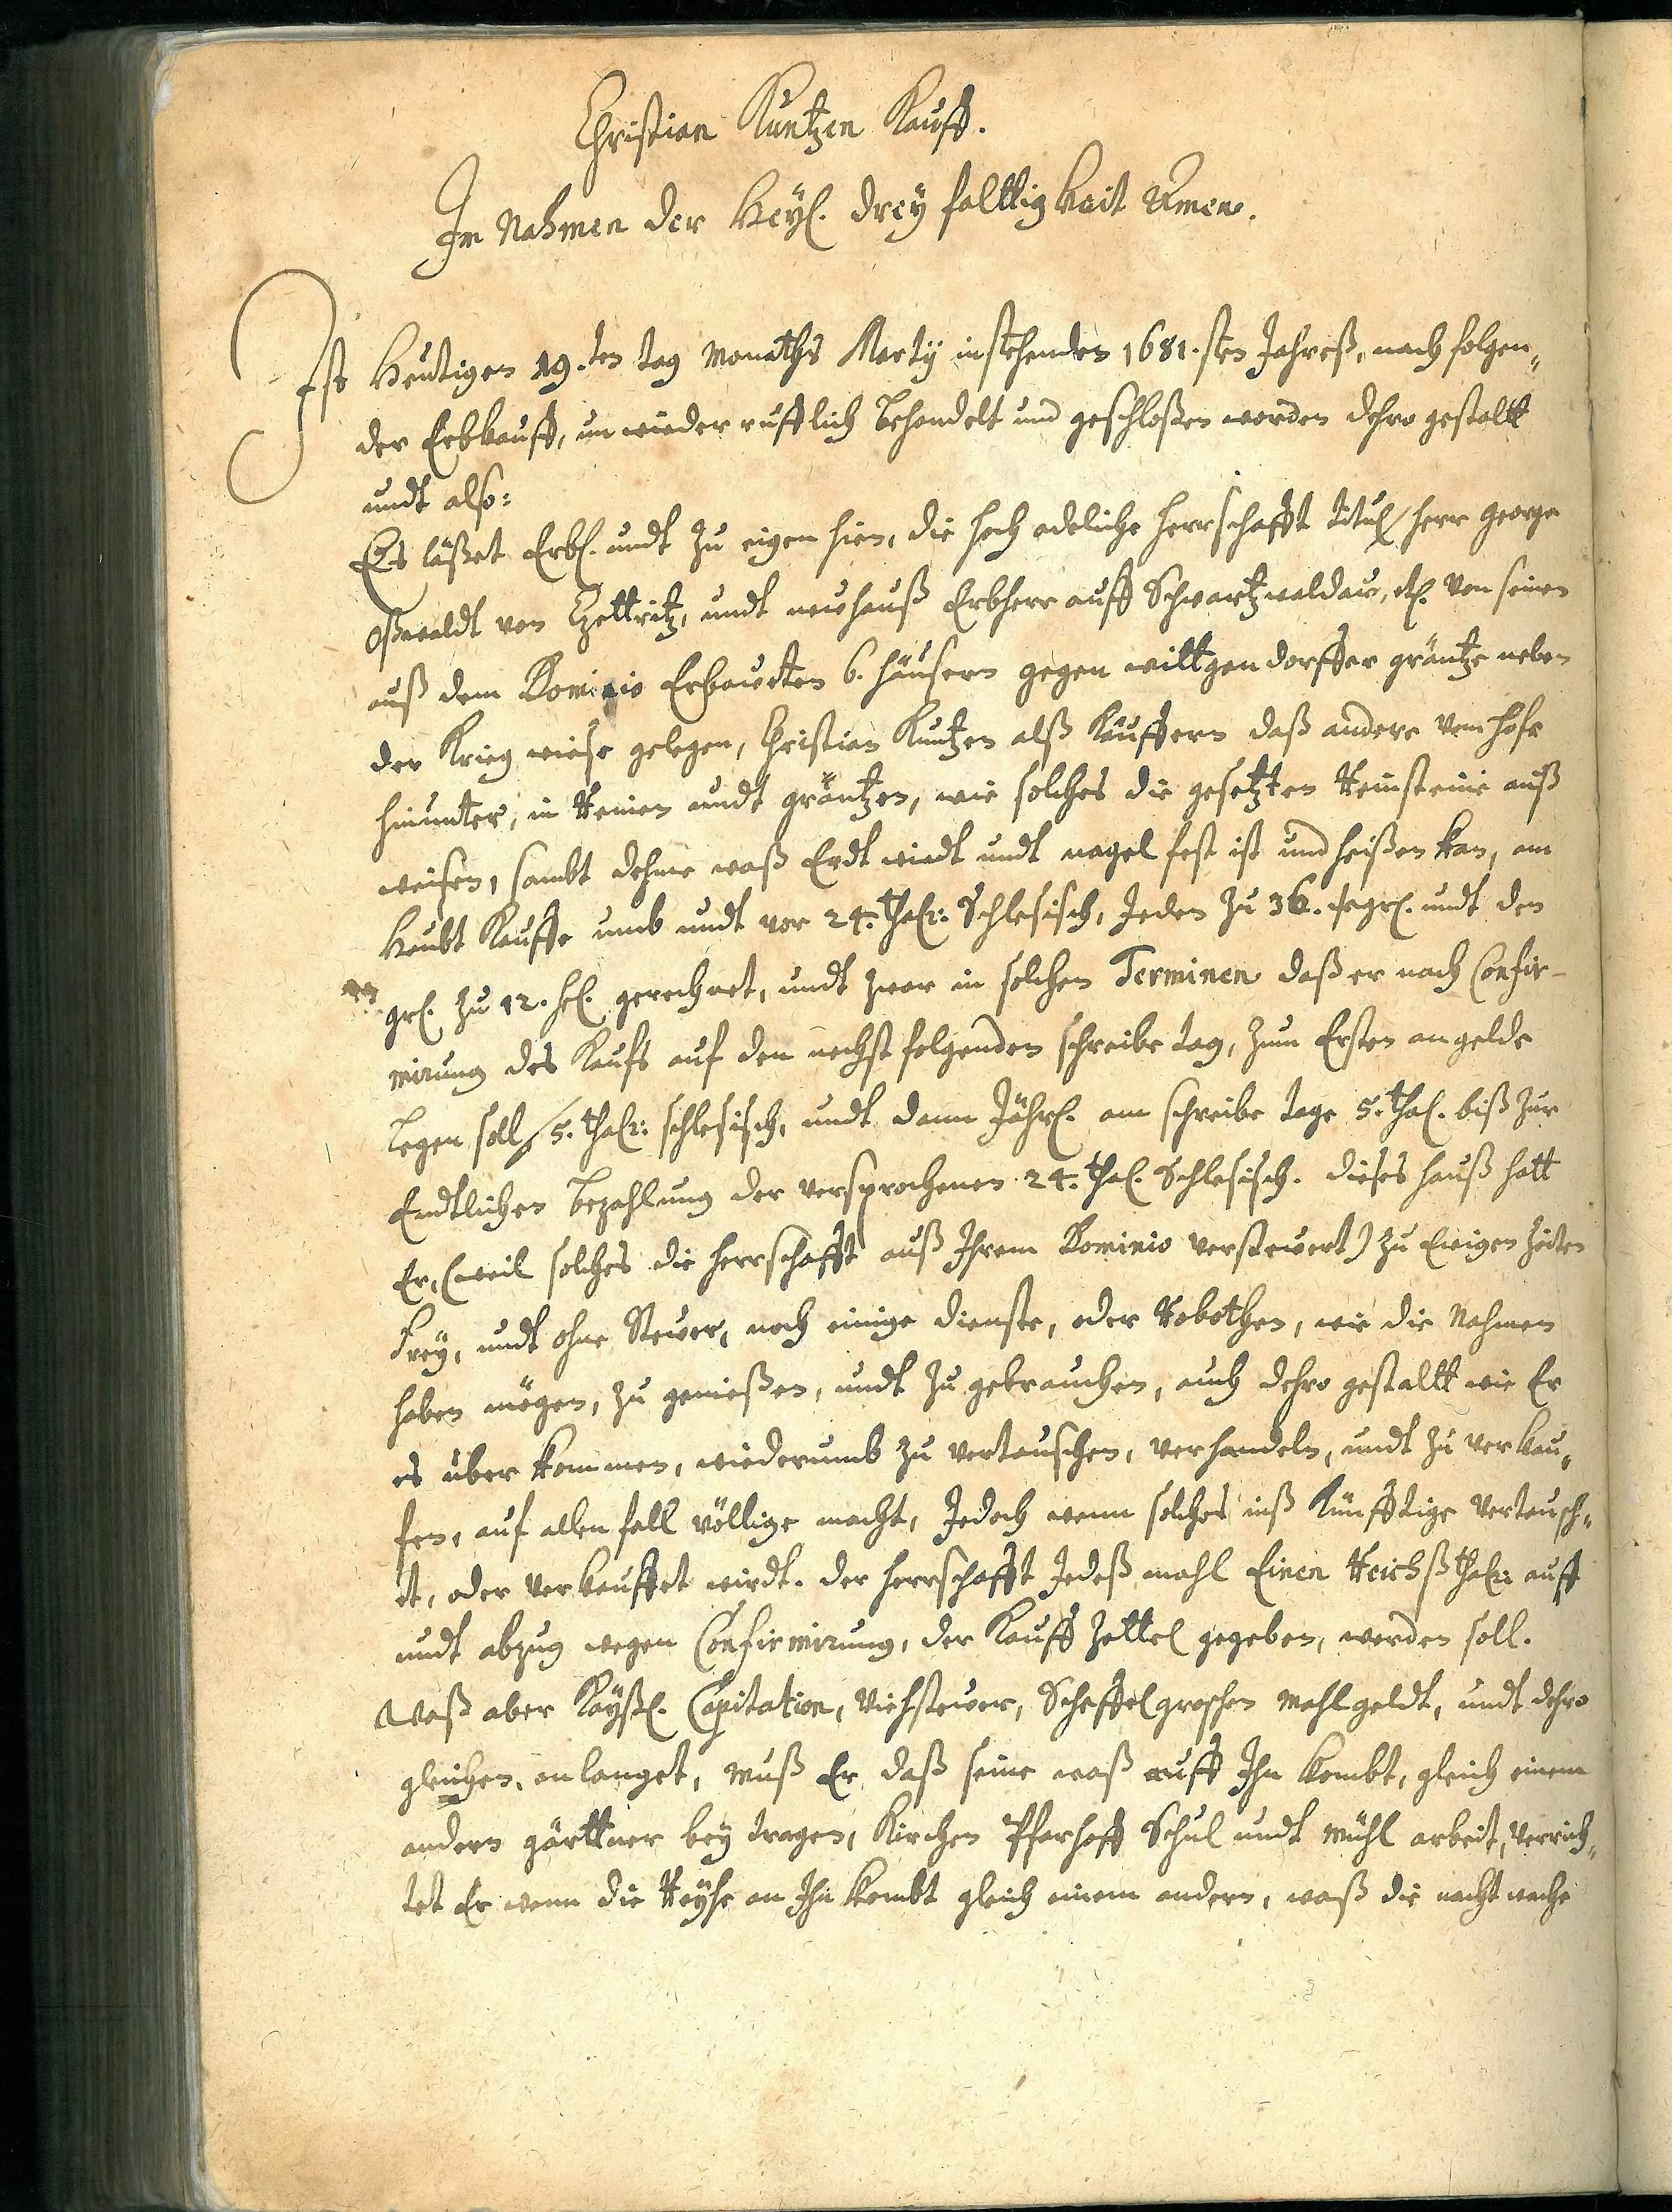 Christian Kuntzen Kauff.
Im Nahmen der Heyl. dreyfalttigkeit Amen.
Ist Heutigen 19.ten tag Monaths Marty instehenden 1681.sten Jahreß, nachfolgen„
der Erbkauff, unwiederrufflich behandelt und geschloßen worden dehro gestaltt
undt also:
Es läßet Erbl. undt zu eigen hien, die hoch adeliche herrschafft titul / herr George
Oßwaldt von Czettritz, undt neuhauß Erbherr auff Schwartzwaldau, etc. von seinen
auß dem Dominio Erbauten 6. häusern gegen wittgendorffer gräntze neben
der Krieg wiese gelegen, Christian Kuntzen alß Käuffern daß andere vom hofe
hinunter, in Reinen undt gräntzen, wie solches die gesetzten Reinsteine auß
weisen, sambt dehme waß Erdt wiedt undt nagelfest ist und heißen kan, am
Haubt Kauffe umb undt vor 24. thalr: Schlesisch, Jeden zu 36. sgr. undt den
gr. zu 12. hl. gerechnet, undt zwar in solchen Terminen daß er nach Confir-
mirung des Kaufs auf den nechst folgenden schreibe tag, zum Ersten angelde
legen soll 5. thalr: schlesisch, undt dann Jährl. am schreibe tage 5. thal. biß zur
Endtlichen bezahlung der versprochenen 24. thal. Schlesisch. dieses hauß hatt
Er, (weil solches die herrschafft auß Ihrem Dominio versteuert) zu Ewigen Zeiten
frey, undt ohne Steuer, noch einige dienste, oder Robothen, wie die Nahmen
haben mögen, zu genießen, undt zu gebrauchen, auch dehro gestaltt wie Er
es überkommen, wiederumb zu vertauschen, verhandeln, undt zu verkau„
fen, auf allen fall völlige macht, Jedoch wenn solches inß Künfftige vertausch„
et, oder verkauffet wirdt. der herrschafft Jedeß mahl Einen Reichßthalr: auff
undt abzug wegen Confirmirung, der Kauff Zettel gegeben, werden soll.
Waß aber Kayßl. Capitation, Viehsteuer, Scheffelgroschen Mahlgeldt, undt dehro
gleichen, anlanget, muß Er daß seine waß auff Ihn kombt, gleich einem
andern gärttner bey tragen, Kirchen Pfarhoff Schul undt Mühl arbeit, verrich„
tet Er wenn die Reyhe an Ihn kombt gleich einem andern, waß die nachtwache